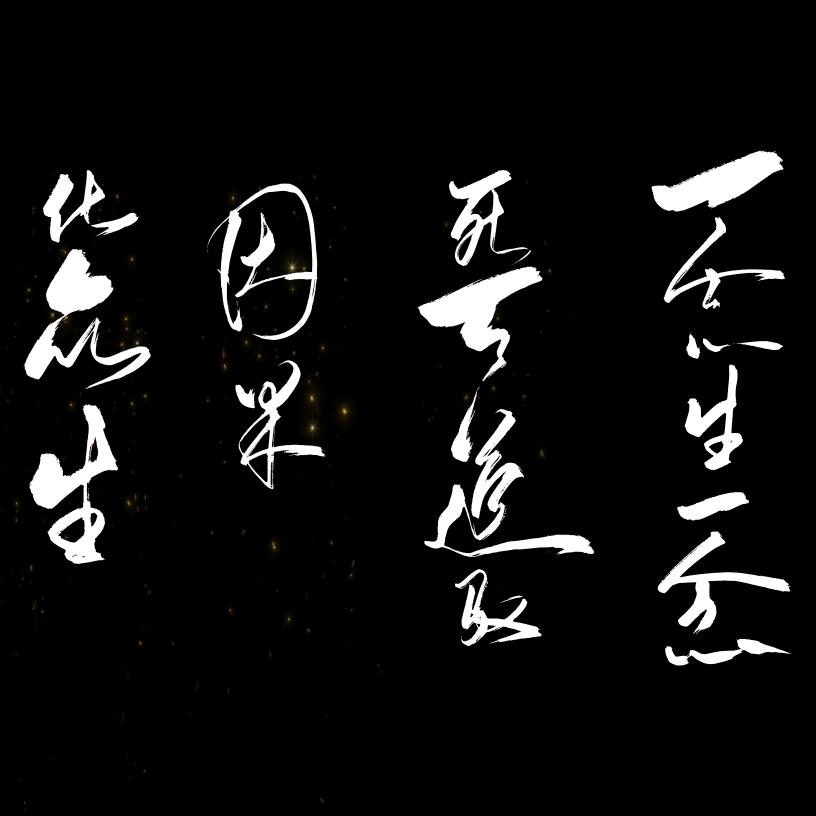 一念生一念
死亡追取
因果
化众生